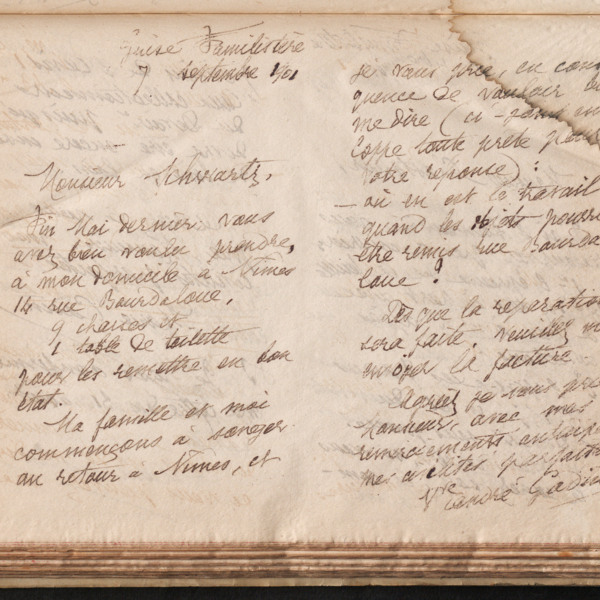 Guise Familistère
7 septembre 1901
Monsieur Schwartz,
Fin Mai dernier vous
avez bien voulu prendre,
à mon domicile à Nîmes
14 rue Bourdaloue,
9 chaises et
1 table de toilette
pour les remettre en bon
état.
Ma famille et moi
commençons à songer
au retour à Nîmes, et
je vous prie, en con
quence de vouloir
me dire (ci-
toute prête pour
votre réponse) :
— où en est le travail
quand les objets pourr
être remis rue Bourda
loue ?
Dès que la réparation
sera faite, veuillez m
envoyer la facture.
Agréez je vous prie
Monsieur, avec mes
remerciements anticip
mes civilités parfaites